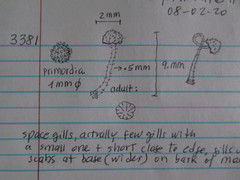 08-02-20
2 mm
3381
primordia
1 mm ϕ
.5mm
adult:
9 mm
space gills, actually few gills with
a small one + short close to edge, gills w
scabs at base (wider) on bark of